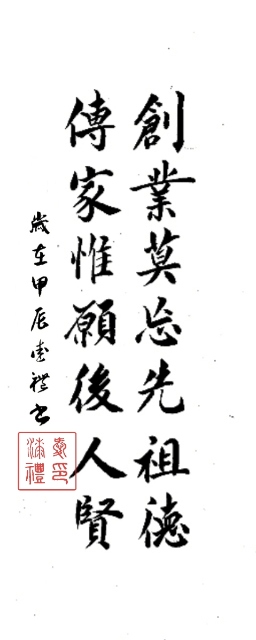 創業莫忘先祖德
傳家惟願後人賢
歲在甲辰禮书